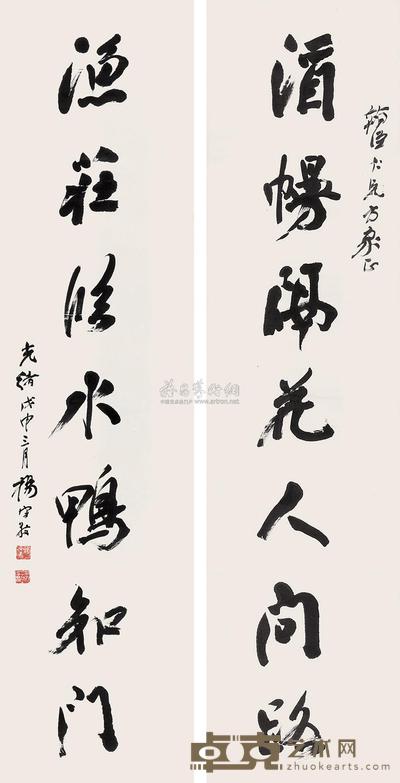 大兄方家正
酒幔隔花人問路
漁莊臨水鴨知門
光緒戊申三月楊守敬
雅昌藝術網
卓克艺术网
www.zhuokearts.com